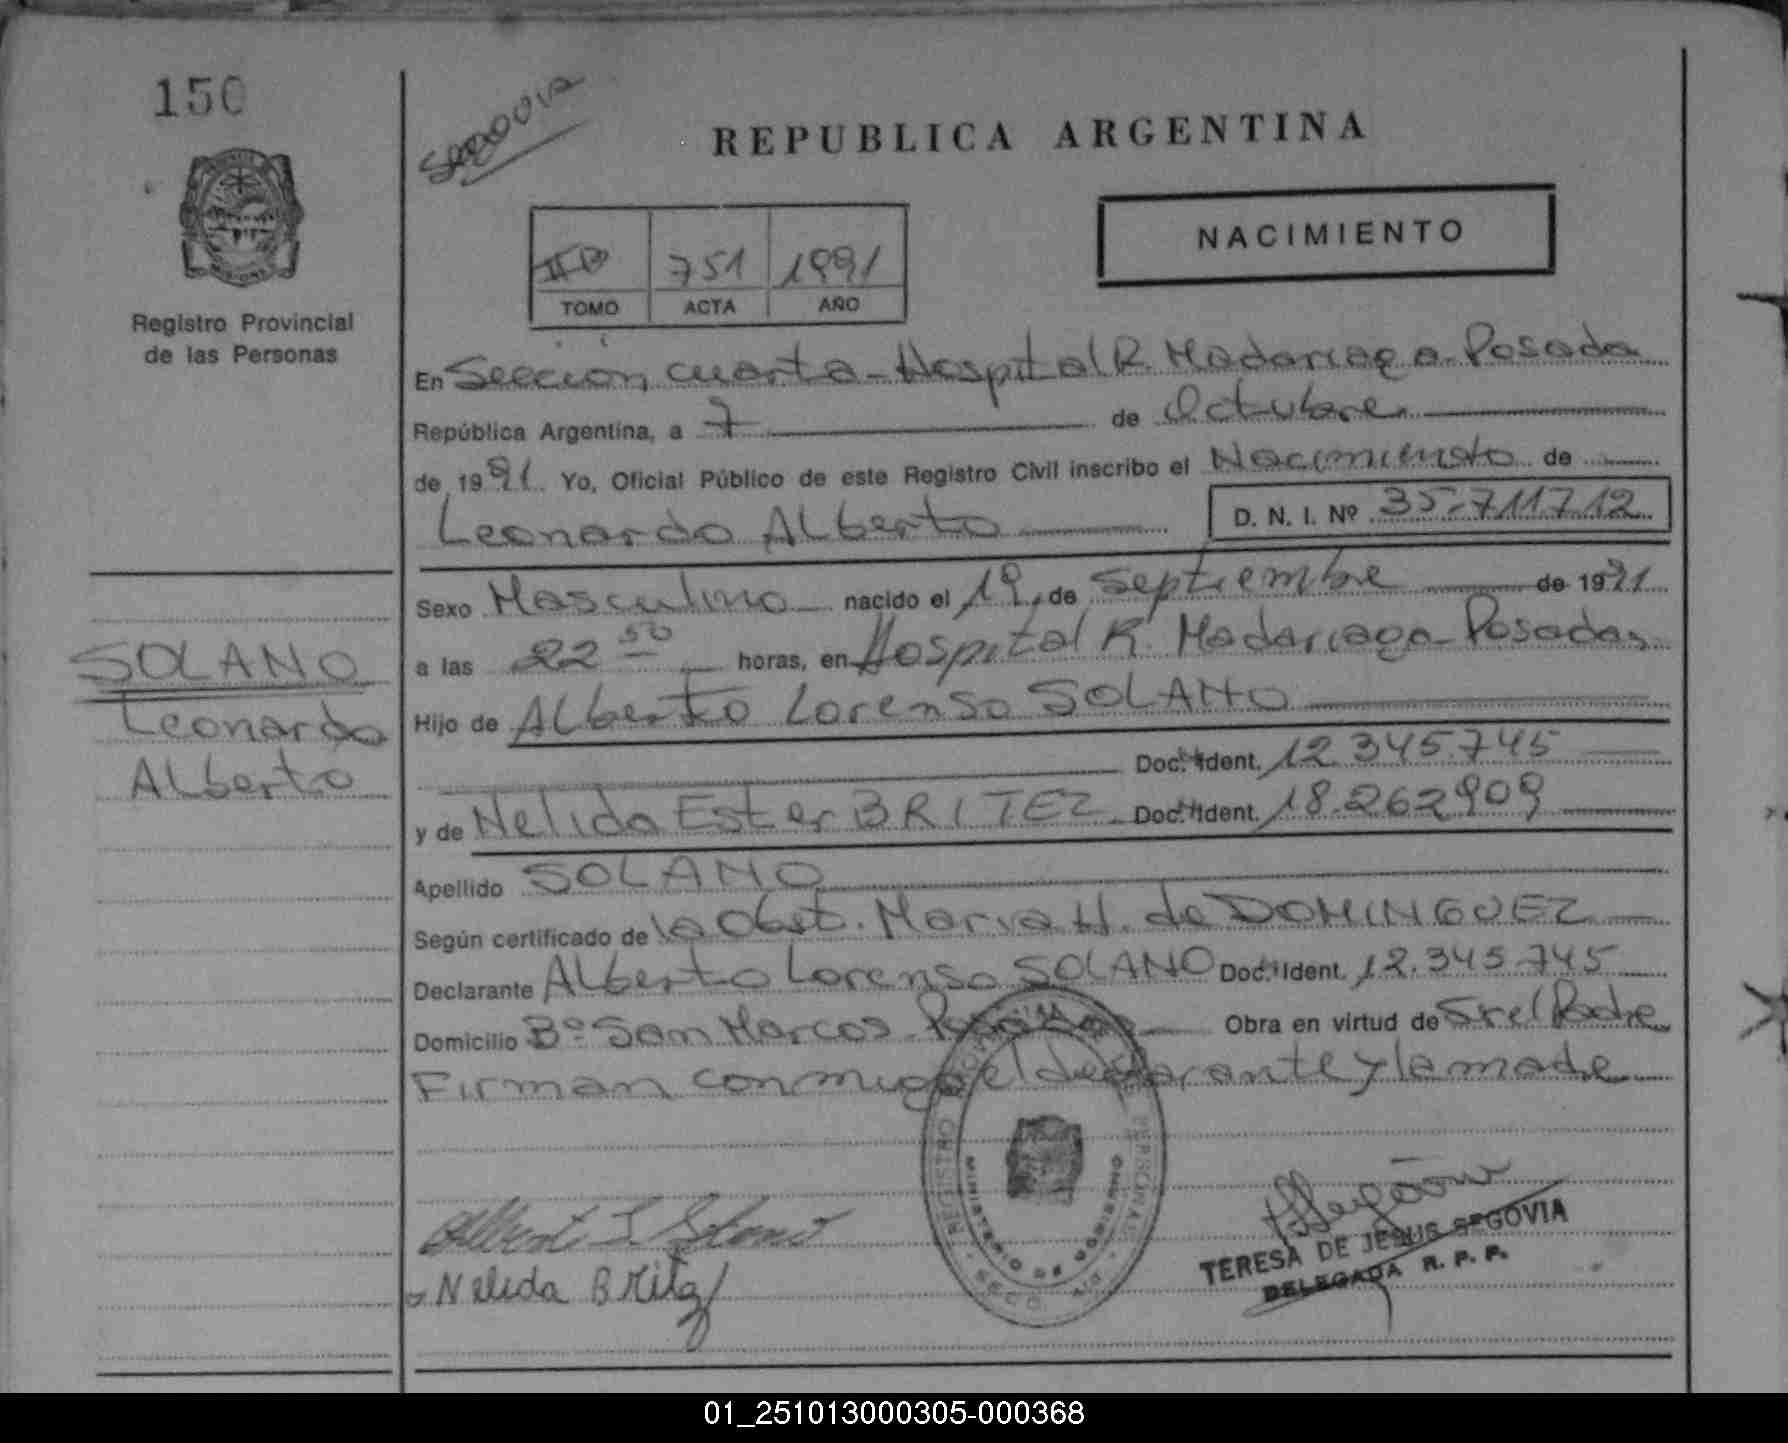 150
SEGOVIA
REPUBLICA ARGENTINA
NACIMIENTO
II B 751 1991
TOMO ACTA AÑO
Registro Provincial
de las Personas
En Sección cuarta - Hospital R. Madariaga - Posadas
República Argentina, a 7 de Octubre
de 1991. Yo, Oficial Público de este Registro Civil inscribo el Nacimiento de
Leonardo Alberto D. N. I. Nº 35.711712
Sexo Masculino nacido el 19, de Septiembre de 1991
a las 22 50 horas, en Hospital R. Madariaga - Posadas
Hijo de Alberto Lorenso SOLANO
Doc. Ident. 12.345.745
y de Nelida Ester BRITEZ Doc. Ident. 18.262909
Apellido SOLANO
Según certificado de la Obst. Maria H. de DOMINGUEZ
Declarante Alberto Lorenso SOLANO Doc. Ident. 12.345.745
Domicilio Bº San Marcos Posadas Obra en virtud de Sr el Padre
Firman conmigo el declarante y la madre
SOLANO
Leonardo
Alberto
REGISTRO PERSONAS
MINISTERIO DE GOBIERNO
Alberto L Solano
Nelida Britez
TERESA DE JESUS SEGOVIA
DELEGADA R. P. P.
01_251013000305-000368